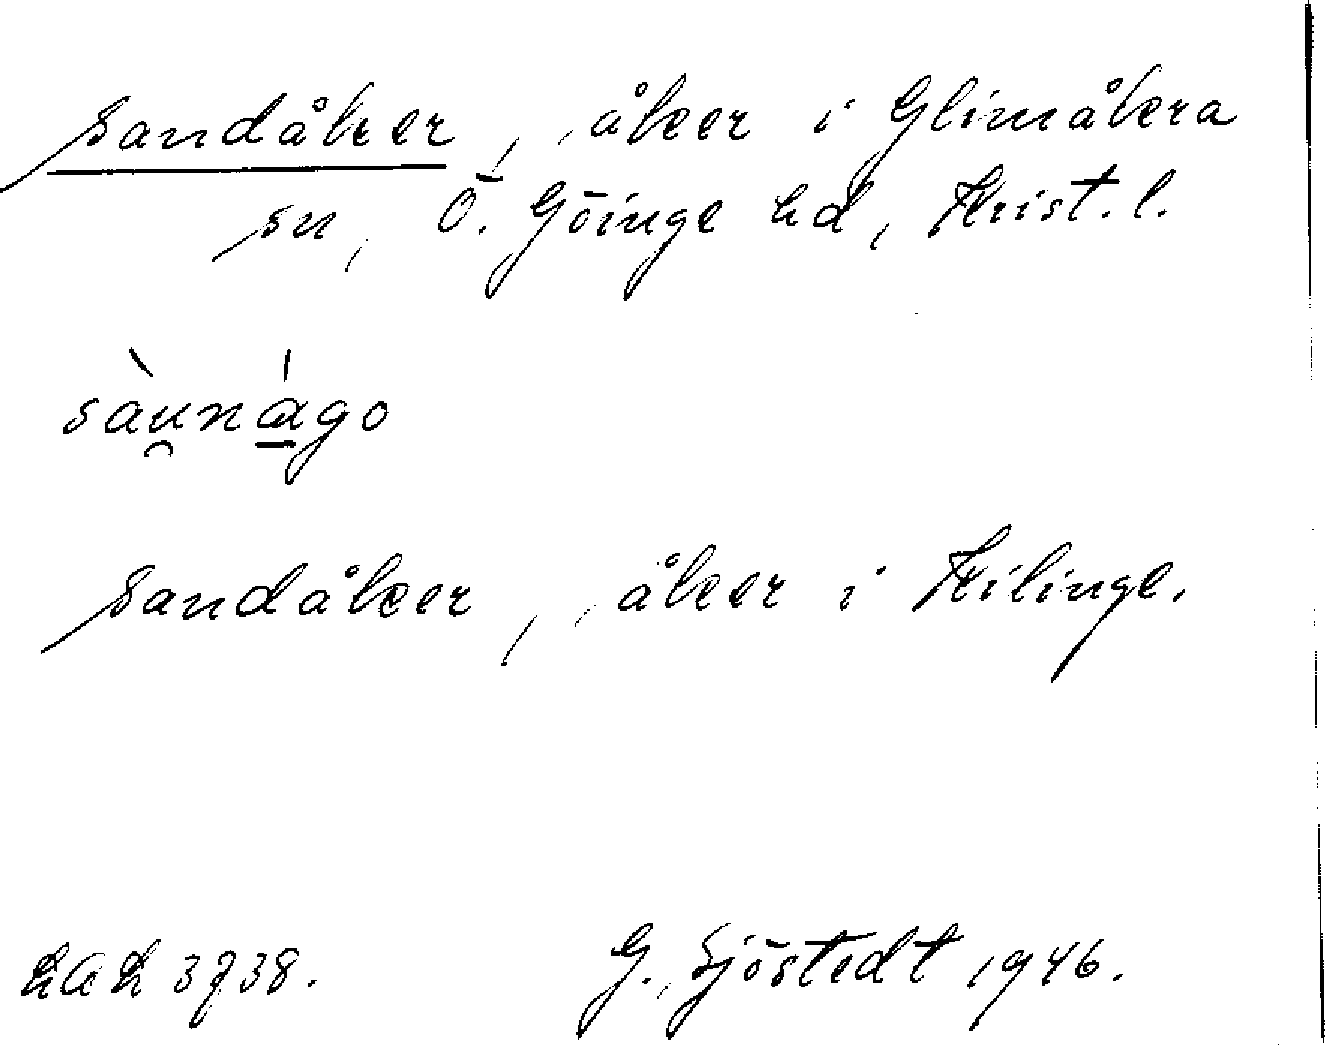 Sandåker, åker i Glimåkra
sn, Ö. Göinge hd, Krist. l.
sàu̯nágo
Sandåker, åker i Kilinge.
LAL 3738.
G. Sjöstedt 1946.